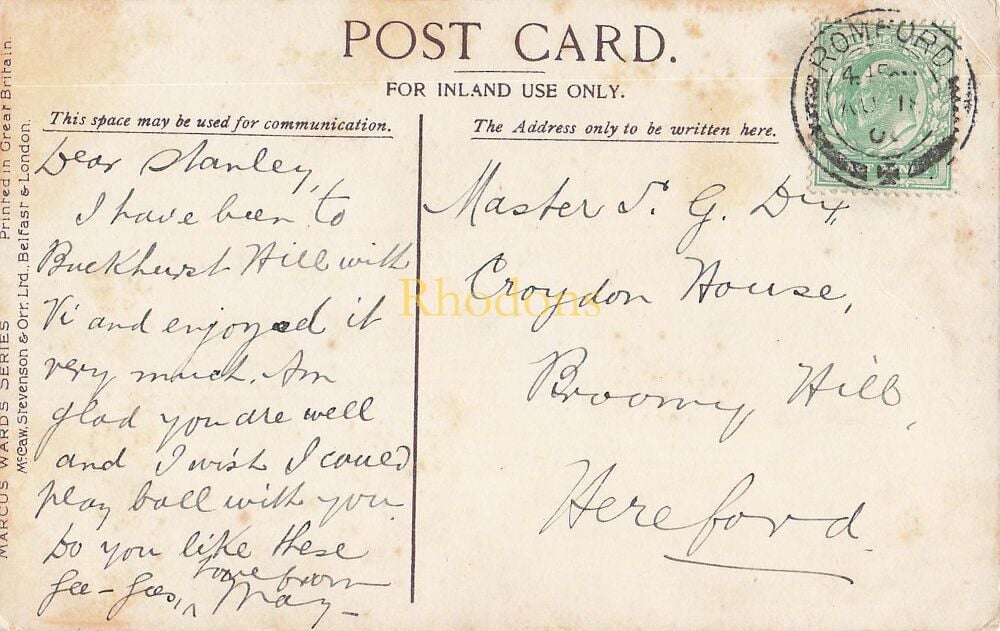 POST CARD.
FOR INLAND USE ONLY.
This space may be used for communication.
The Address only to be written here.
MARCUS WARD'S SERIES Printed in Great Britain.
McCaw, Stevenson & Orr, Ltd., Belfast & London.
Dear Stanley,
I have been to
Buckhurst Hill with
Vi and enjoyed it
very much. Am
glad you are well
and I wish I could
play ball with you
Do you like these
Gee-Gees, love from
May
Master S. G. Dix
Croydon House,
Broomy Hill,
Hereford.
ROMFORD
Rhodons